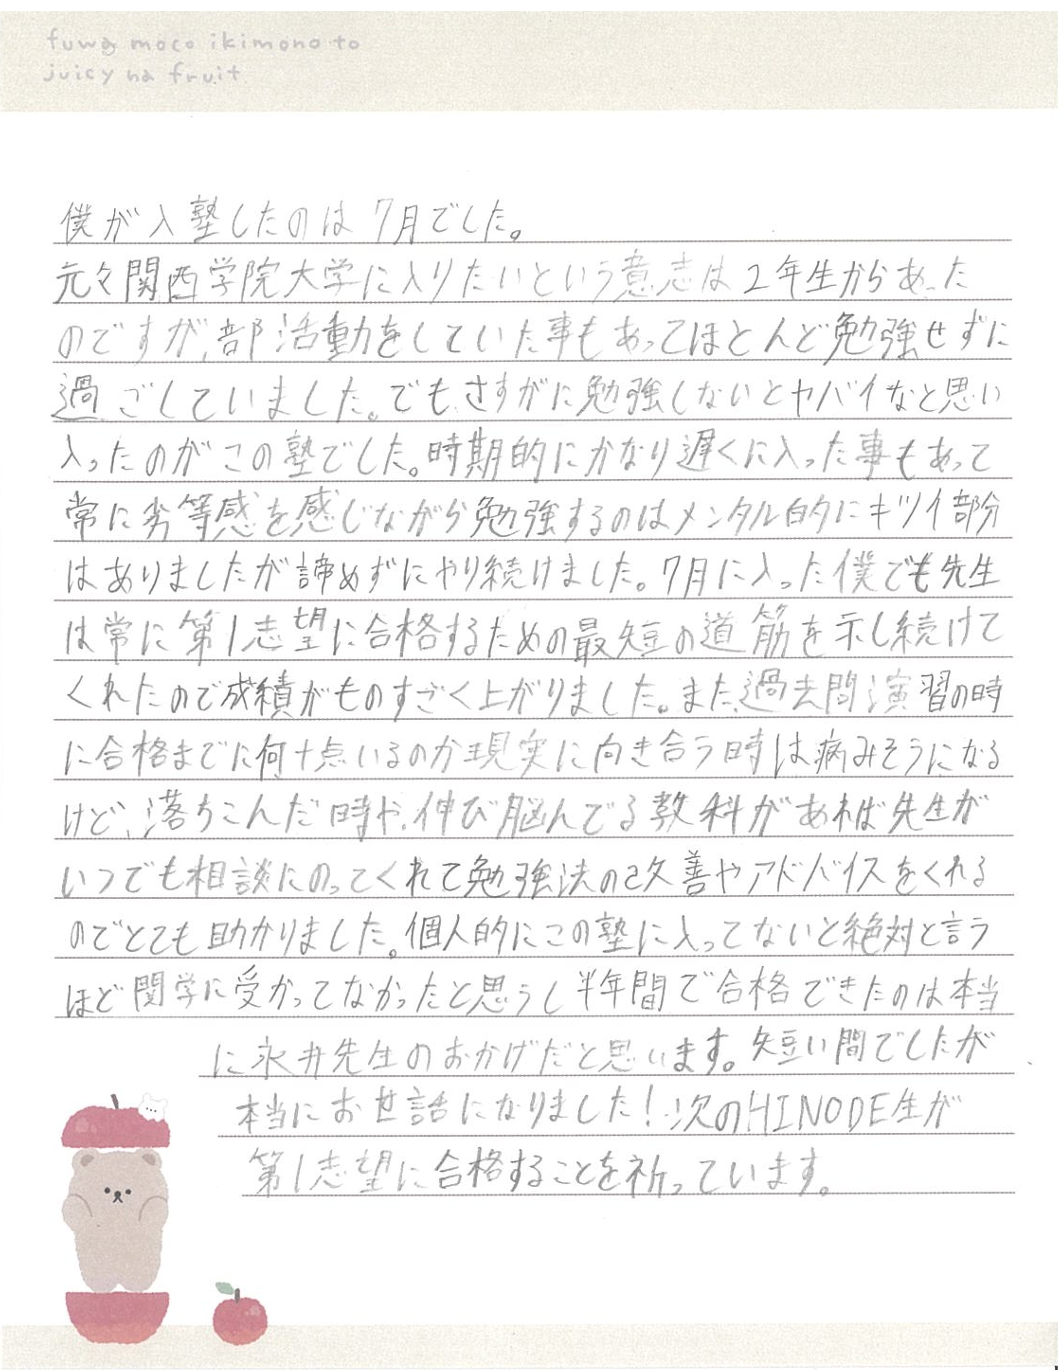 fuwa moco ikimono to
juicy na fruit
僕が入塾したのは7月でした。
元々関西学院大学に入りたいという意志は2年生からあった
のですが、部活動をしていた事もあってほとんど勉強せずに
過ごしていました。でも、さすがに勉強しないとヤバイなと思い
入ったのがこの塾でした。時期的にかなり遅くに入った事もあって
常に劣等感を感じながら勉強するのはメンタル的にキツイ部分
はありましたが諦めずにやり続けました。7月に入った僕でも先生
は常に第1志望に合格するための最短の道筋を示し続けて
くれたので成績がものすごく上がりました。また、過去問演習の時
に合格までに何十点いるのか現実に向き合う時は病みそうになる
けど、落ちこんだ時や、伸び脳んでる教科があれば先生が
いつでも相談にのってくれて勉強法の改善やアドバイスをくれる
のでとても助かりました。個人的にこの塾に入ってないと絶対と言う
ほど関学に受かってなかったと思うし半年間で合格できたのは本当
に永井先生のおかげだと思います。短い間でしたが
本当にお世話になりました!次のHINODE生が
第1志望に合格することを祈っています。